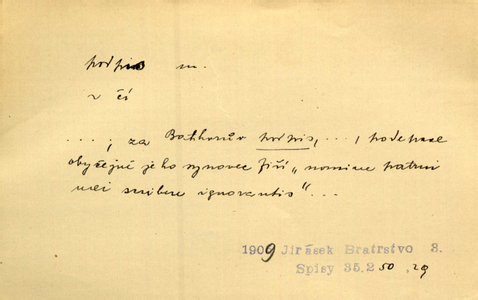 podpis m.
~ čí
...; za Bathorův podpis, ..., podepsal
obyčejně jeho synovec Jiří „nomine patrui
mei scribere ignorantis“...
1909 Jirásek Bratrstvo 3.
Spisy 35.250,29